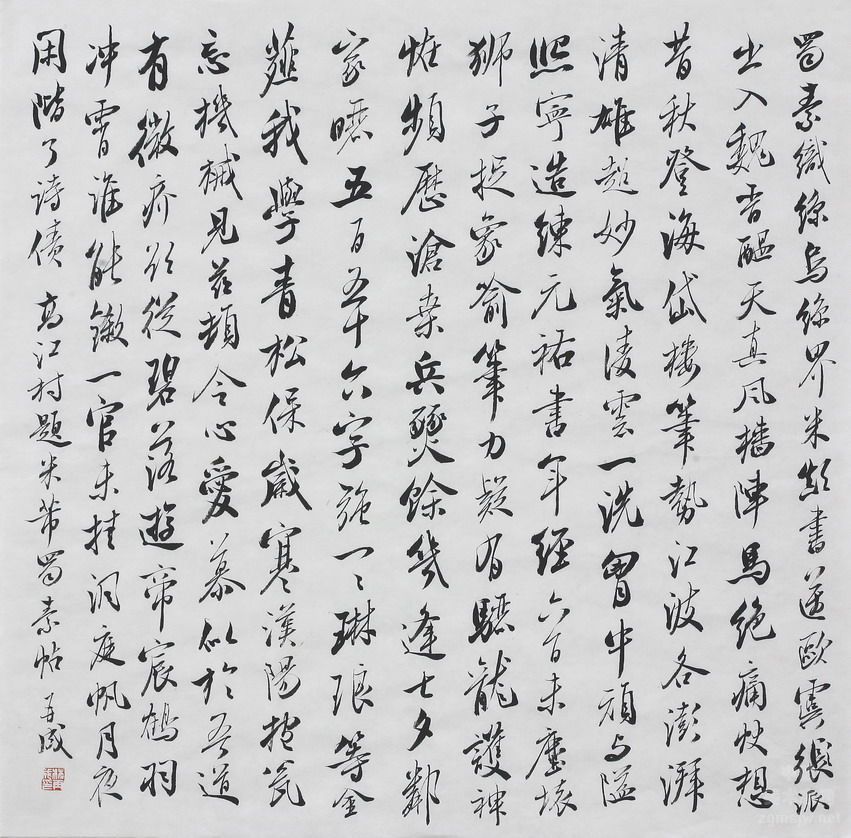 蜀素織絲烏絲界米顛書邁歐虞張派
出入魏晉醞天真風檣陣馬絶痛快想
昔秋登海岱樓筆勢江波各澎湃
清雄超妙氣凌雲一洗胃中頑与隘
熙寧造練元祐書年經六百未塵壞
獅子捉象喻筆力疑有驪龍護神
怪頻歷滄桒兵燹餘幾逢七夕鄰
家曬五百五十六字強一一琳琅等金
薤我學青松保歲寒漢陽抱瓮
忘機械見兹頓令心愛慕似於吾道
有微疥欲從碧落遊帝宸鶴羽
冲霄誰能鎩一官未挂洞庭帆月夜
閑階了詩債 高江村題米芾蜀素帖
zgmsw.net